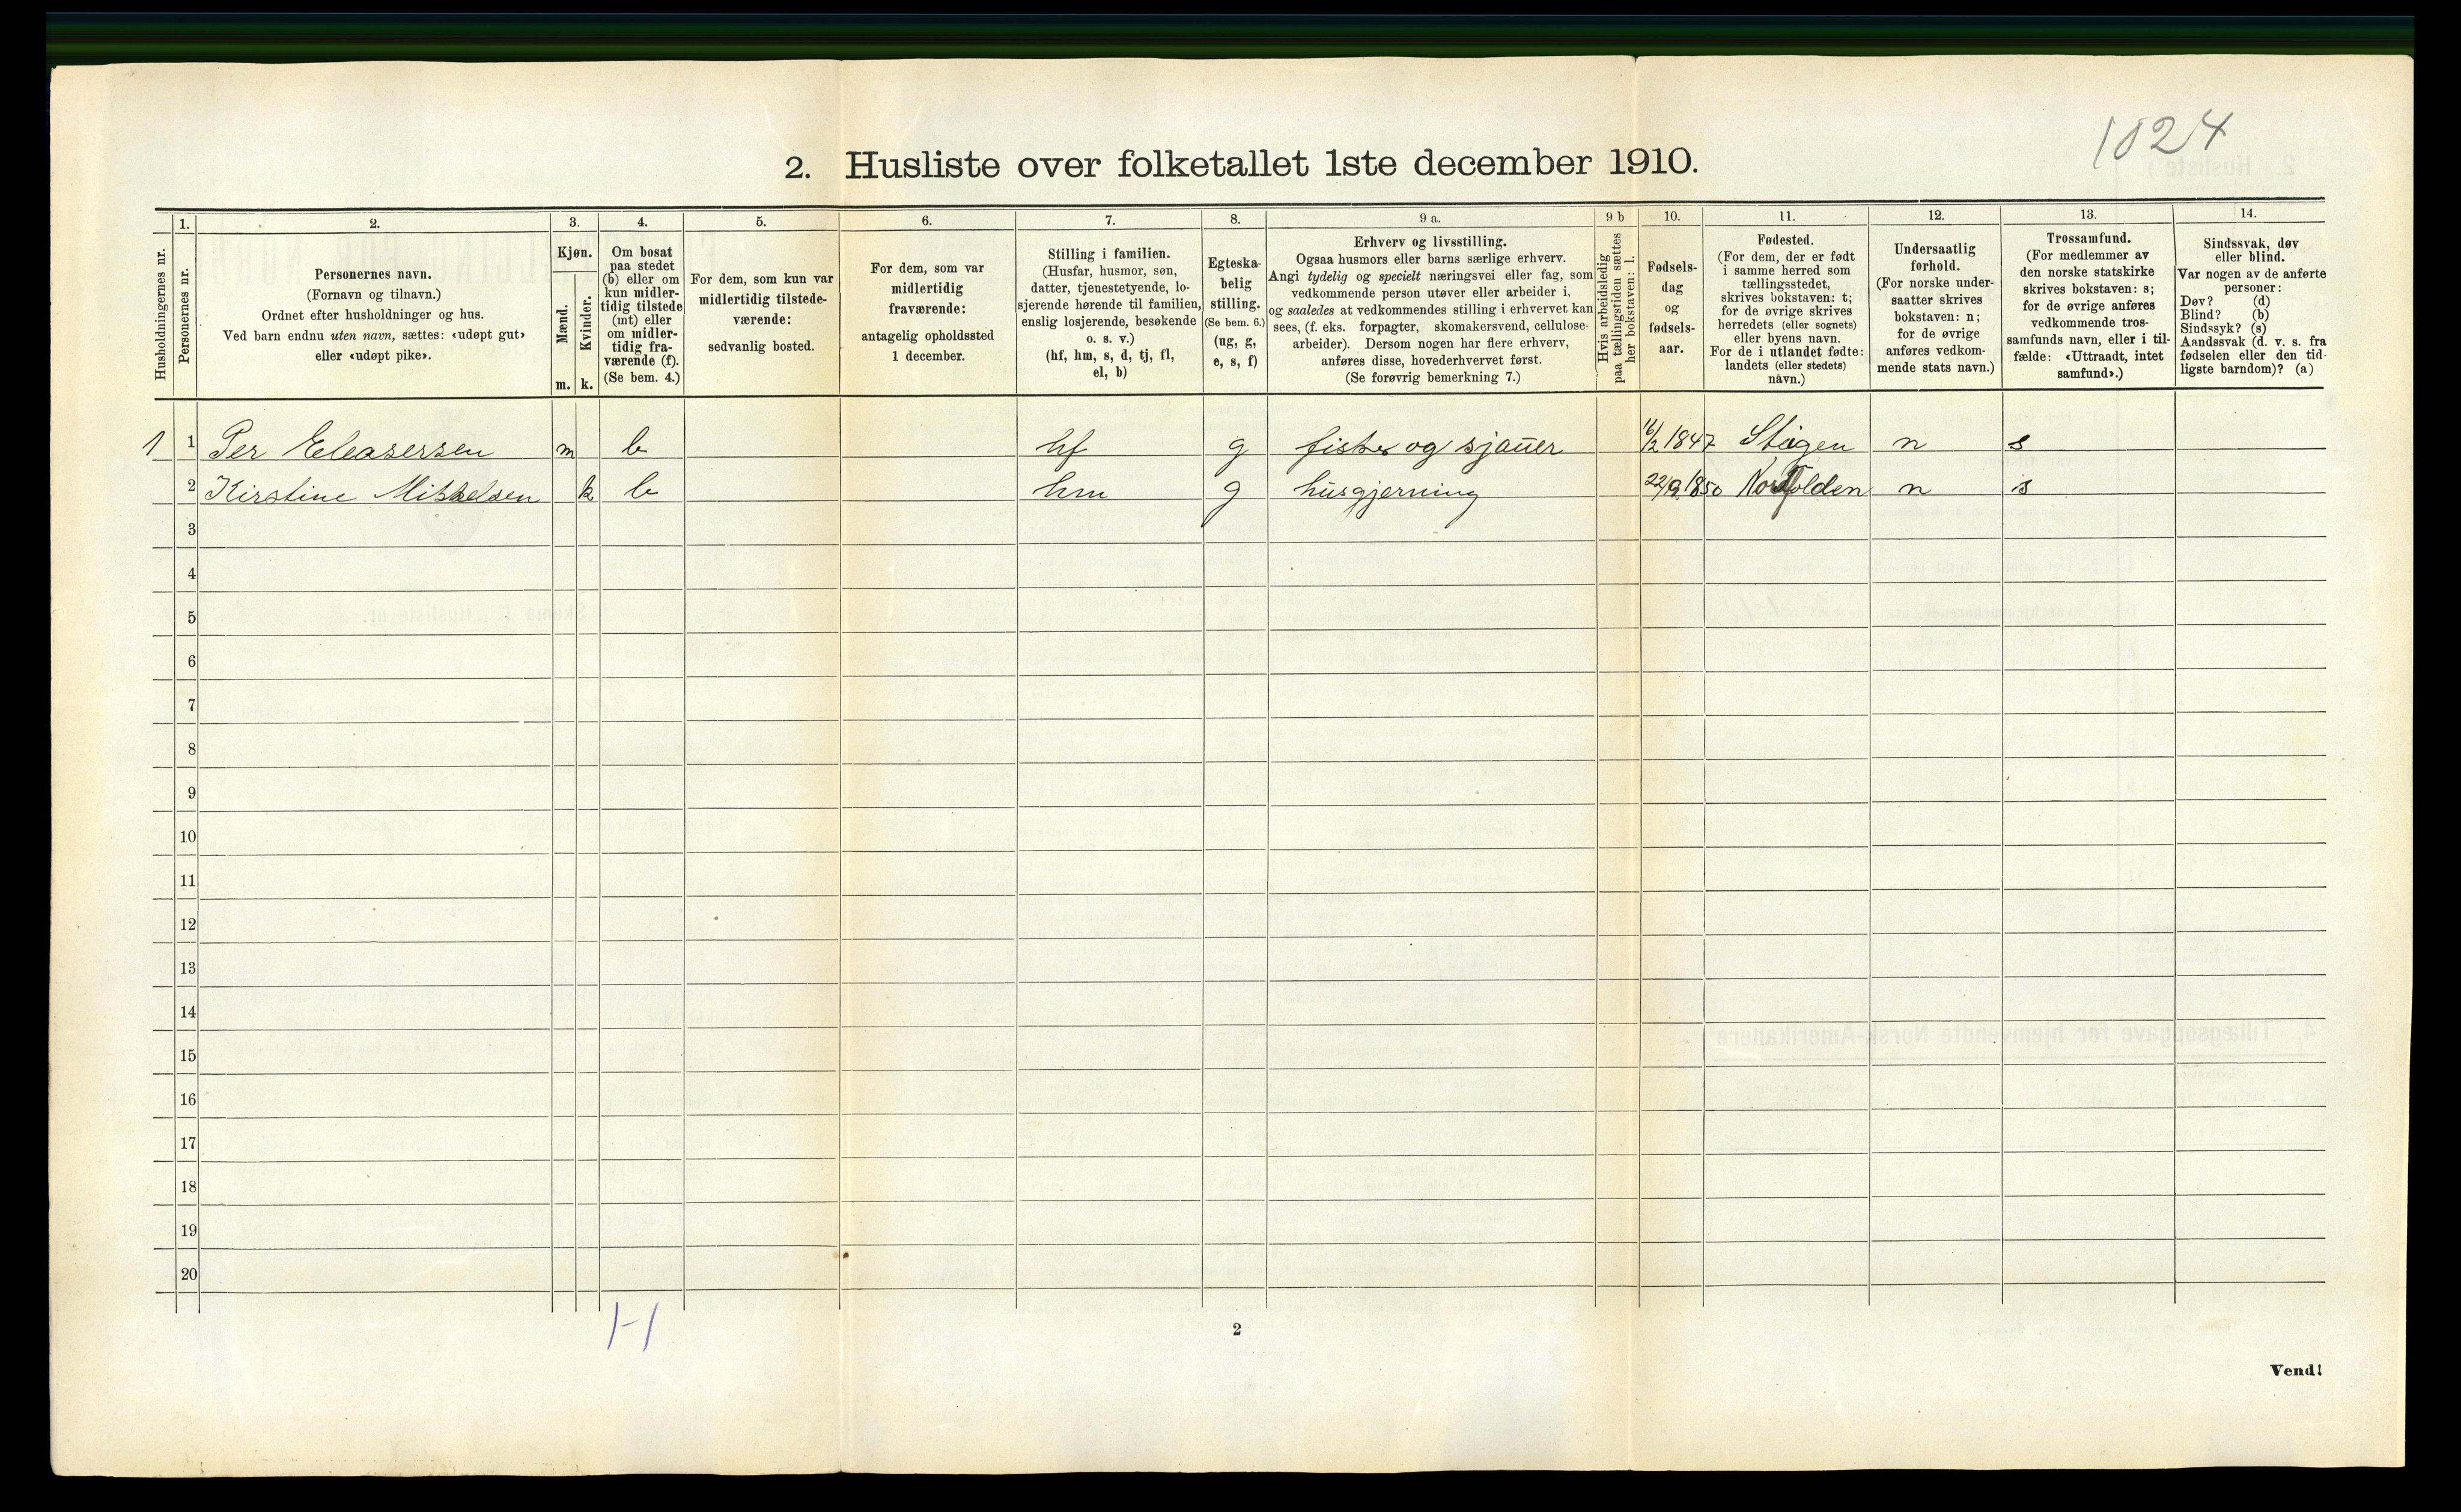 1024
2. Husliste over folketallet 1ste december 1910.
Husholdningernes nr.
1.
Personernes nr.
2.
Personernes navn.
(Fornavn og tilnavn.)
Ordnet efter husholdninger og hus.
Ved barn endnu uten navn, sættes: «udøpt gut»
eller «udøpt pike».
3.
Kjøn.
Mænd.
Kvinder.
m. k.
4.
Om bosat
paa stedet
(b) eller om
kun midler-
tidig tilstede
(mt) eller
om midler-
tidig fra-
værende (f).
(Se bem. 4.)
5.
For dem, som kun var
midlertidig tilstede-
værende:
sedvanlig bosted.
6.
For dem, som var
midlertidig
fraværende:
antagelig opholdssted
1 december.
7.
Stilling i familien.
(Husfar, husmor, søn,
datter, tjenestetyende, lo-
sjerende hørende til familien,
enslig losjerende, besøkende
o. s. v.)
(hf, hm, s, d, tj, fl,
el, b)
8.
Egteska-
belig
stilling.
(Se bem. 6.)
(ug, g,
e, s, f)
9 a.
Erhverv og livsstilling.
Ogsaa husmors eller barns særlige erhverv.
Angi tydelig og specielt næringsvei eller fag, som
vedkommende person utøver eller arbeider i,
og saaledes at vedkommendes stilling i erhvervet kan
sees, (f. eks. forpagter, skomakersvend, cellulose-
arbeider). Dersom nogen har flere erhverv,
anføres disse, hovederhvervet først.
(Se forøvrig bemerkning 7.)
9 b
Hvis arbeidsledig
paa tællingstiden sættes
her bokstaven: l.
10.
Fødsels-
dag
og
fødsels-
aar.
11.
Fødested.
(For dem, der er født
i samme herred som
tællingsstedet,
skrives bokstaven: t;
for de øvrige skrives
herredets (eller sognets)
eller byens navn.
For de i utlandet fødte:
landets (eller stedets)
navn.)
12.
Undersaatlig
forhold.
(For norske under-
saatter skrives
bokstaven: n;
for de øvrige
anføres vedkom-
mende stats navn.)
13.
Trossamfund.
(For medlemmer av
den norske statskirke
skrives bokstaven: s;
for de øvrige anføres
vedkommende tros-
samfunds navn, eller i til-
fælde: «Uttraadt, intet
samfund».)
14.
Sindssvak, døv
eller blind.
Var nogen av de anførte
personer:
Døv? (d)
Blind? (b)
Sindssyk? (s)
Aandssvak (d. v. s. fra
fødselen eller den tid-
ligste barndom)? (a)
1 1 Per Eleasersen m b hf g fisker og sjauer 16/2 1847 Stegen n s
2 Kirstine Mikkelsen k b hm g husgjerning 22/9 1850 Nordfolden n s
3
4
5
6
7
8
9
10
11
12
13
14
15
16
17
18
19
20
1-1
2
Vend!